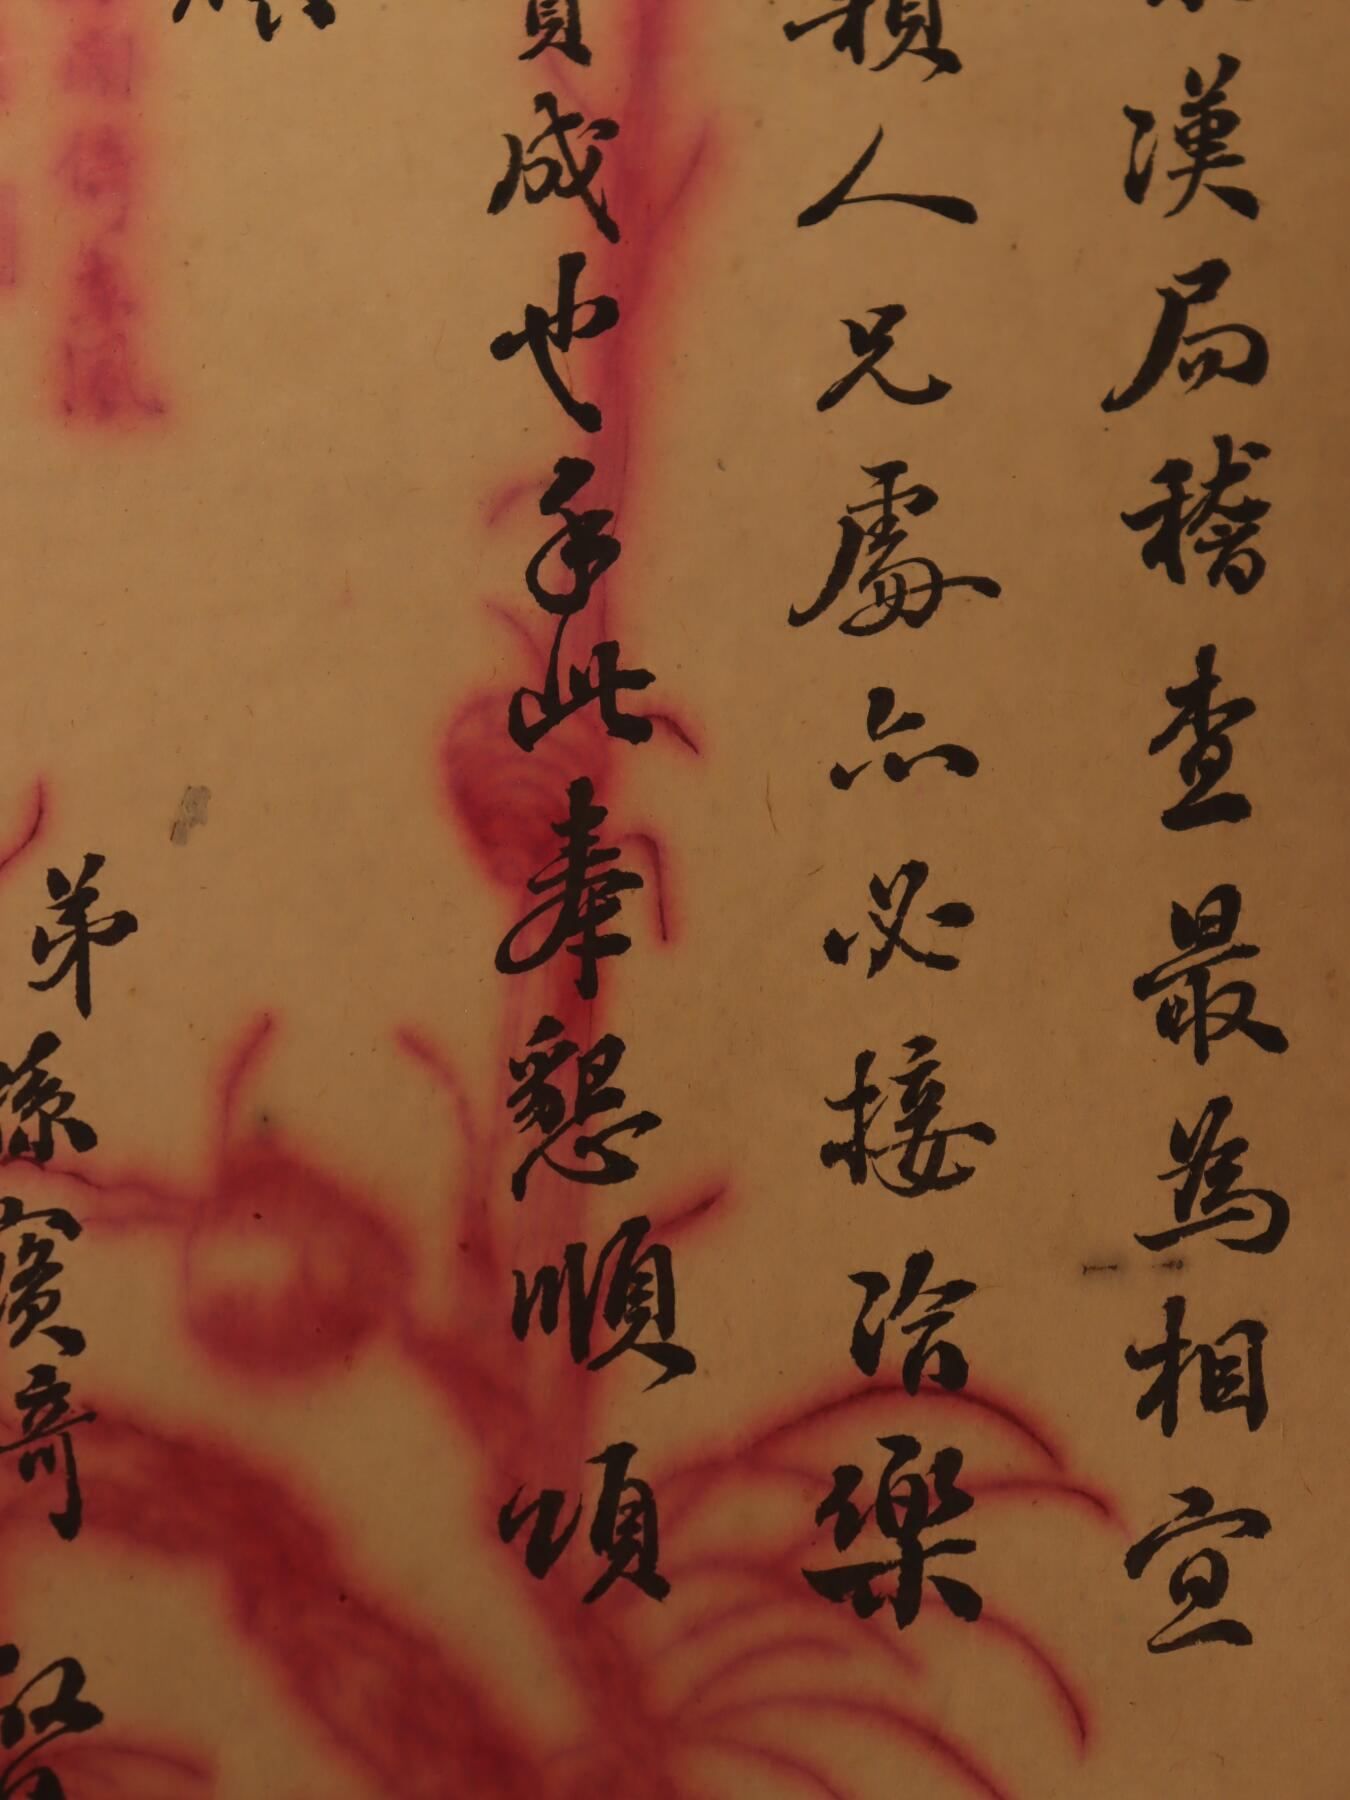 漢局稽查最為相宜
人兄處亦必接洽樂
成也手此奉懇順頌
弟孫寶琦